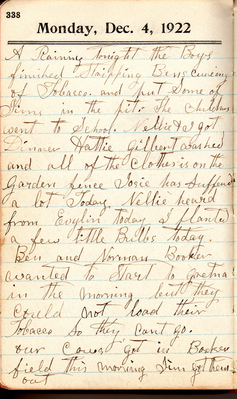 338
Monday, Dec. 4, 1922
A Raining tonight the Boys
finished Stripping Bens curing
of Tobacco. and put Some of
Jims in the pit. The children
went to School. Nellie & I got
Dinner Hattie Gilbert washed
and all of the clothes is on the
Garden fence Josie has Suffered
a lot Today. Nellie heard
from Evylin today I planted
a few little Bulbs today.
Ben and Norman Booker
wanted to Start to Gretna
in the morning but they
could not load their
Tobacco so they cant go.
our Cows got in Booker
field this morning Jim got them
out